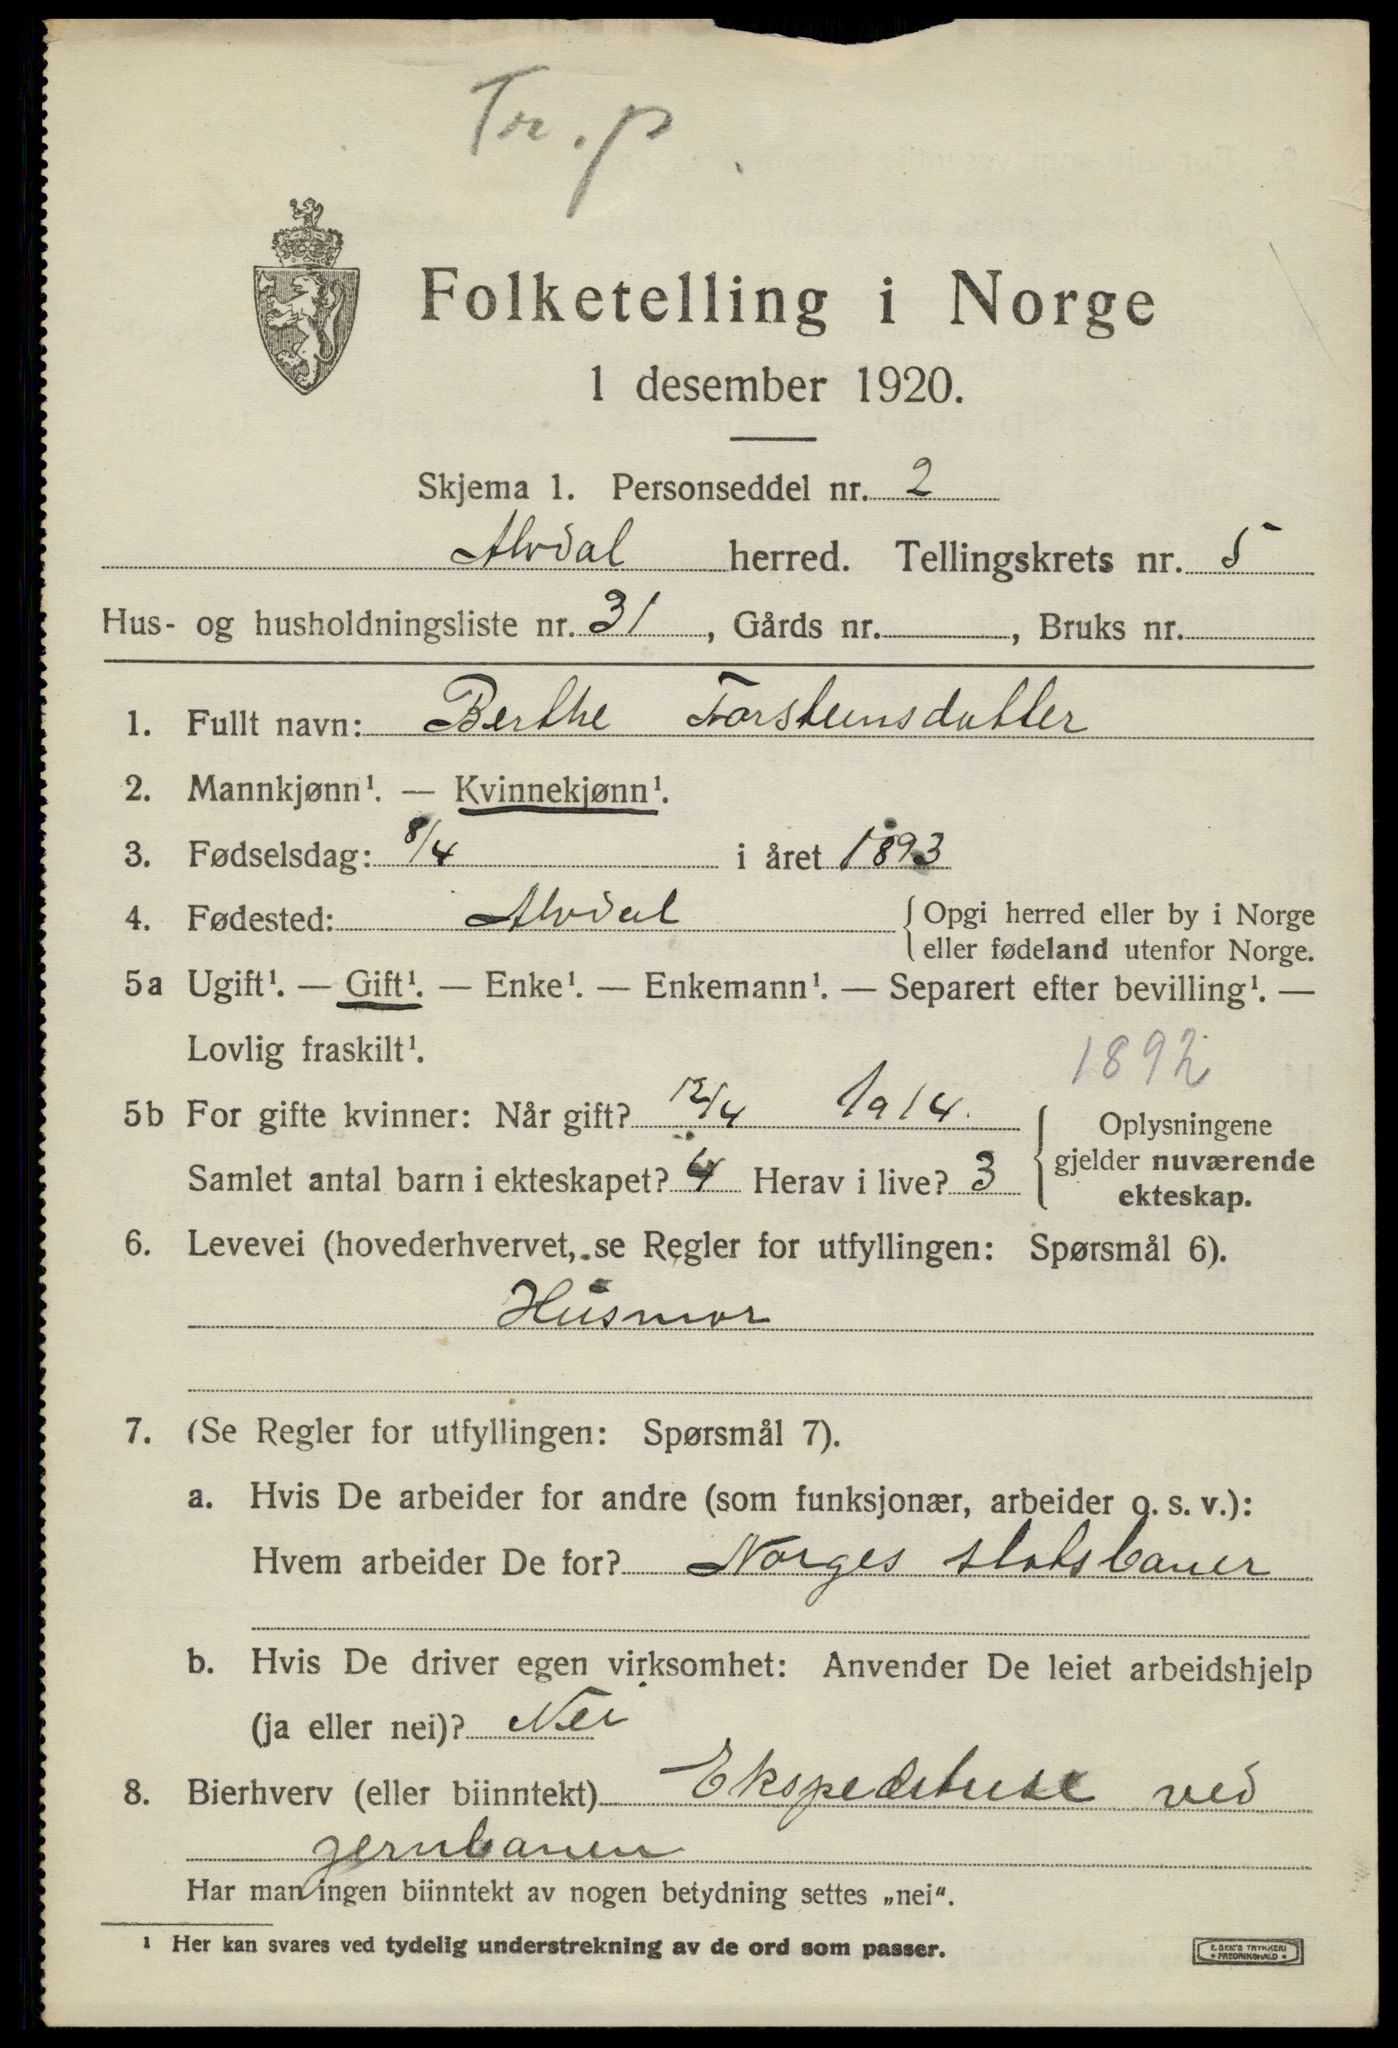 Tr. p
Folketelling i Norge
1 desember 1920.
Skjema 1. Personseddel nr. 2
Alvdal herred. Tellingskrets nr. 5
Hus- og husholdningsliste nr. 31, Gårds nr. , Bruks nr.
1. Fullt navn: Berthe Torsteinsdatter
2. Mannkjønn¹. — Kvinnekjønn¹.
3. Fødselsdag: 8/4 i året 1893
4. Fødested: Alvdal { Opgi herred eller by i Norge
eller fødeland utenfor Norge.
5a Ugift¹. — Gift¹. — Enke¹. — Enkemann¹. — Separert efter bevilling¹. —
Lovlig fraskilt¹.
1892
5b For gifte kvinner: Når gift? 12/4 1914. { Oplysningene
gjelder nuværende
ekteskap.
Samlet antal barn i ekteskapet? 4 Herav i live? 3
6. Levevei (hovederhvervet, se Regler for utfyllingen: Spørsmål 6).
Husmor
7. (Se Regler for utfyllingen: Spørsmål 7).
a. Hvis De arbeider for andre (som funksjonær, arbeider o. s. v.):
Hvem arbeider De for? Norges statsbaner
b. Hvis De driver egen virksomhet: Anvender De leiet arbeidshjelp
(ja eller nei)? Nei
8. Bierhverv (eller biinntekt) Ekspeditrise ved
jernbanen
Har man ingen biinntekt av nogen betydning settes „nei“.
¹ Her kan svares ved tydelig understrekning av de ord som passer.
E. SEM'S TRYKKERI
FREDRIKSHALD